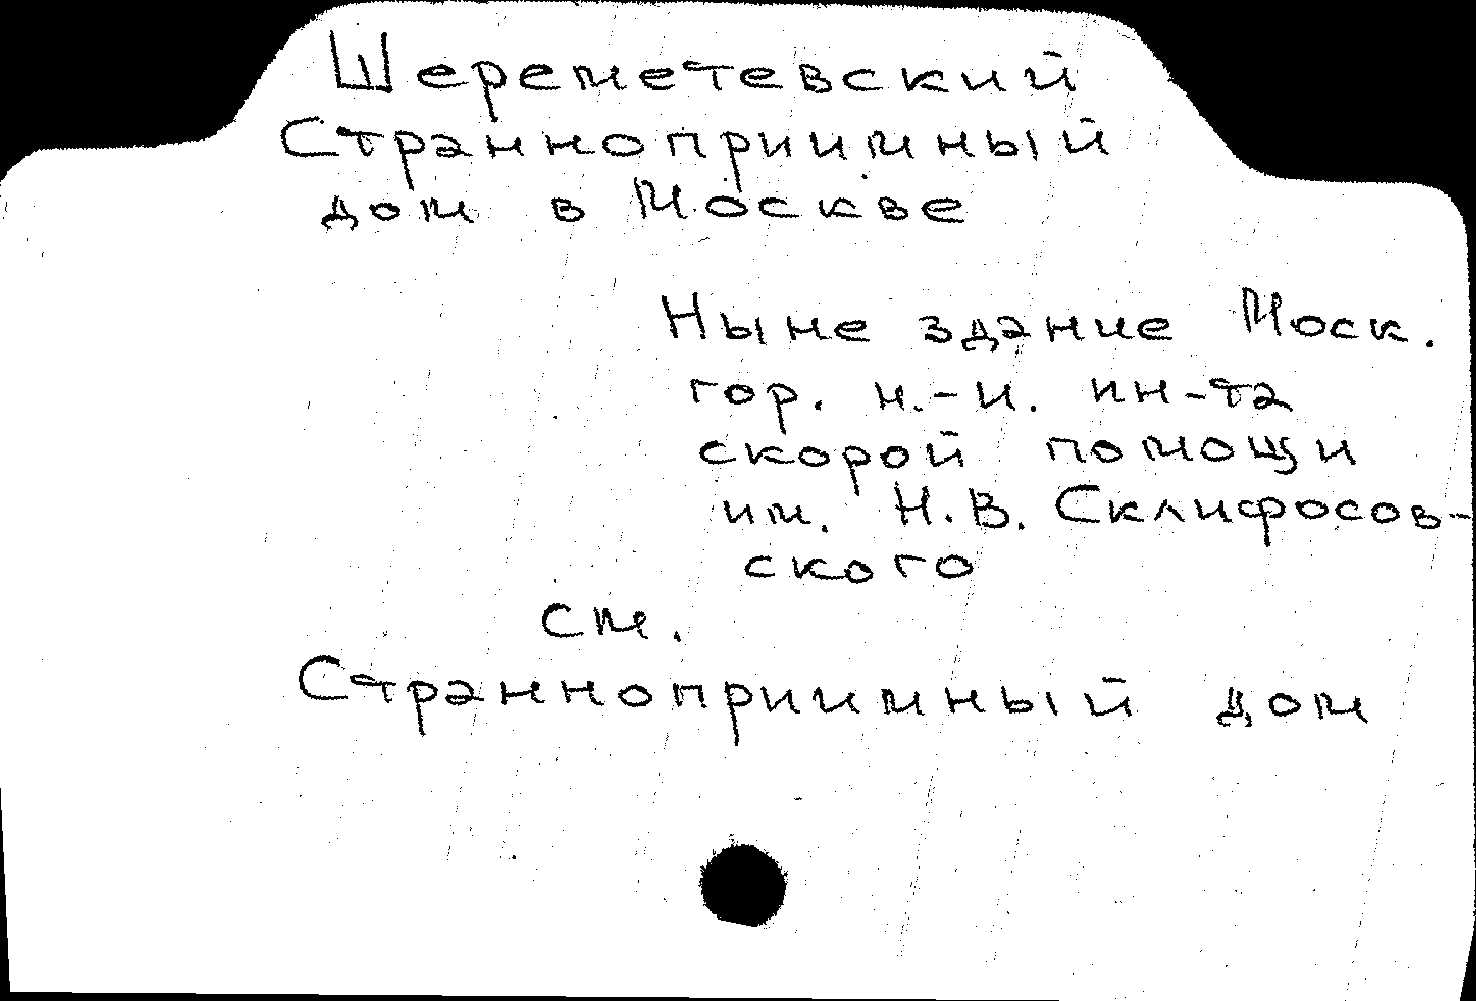 Шереметевский
Странноприимный
дом в Москве
Ныне здание Моск.
гор. н.-и. ин-та
скорой помощи
им. Н.В. Склифосов-
ского
см.
Странноприимный дом